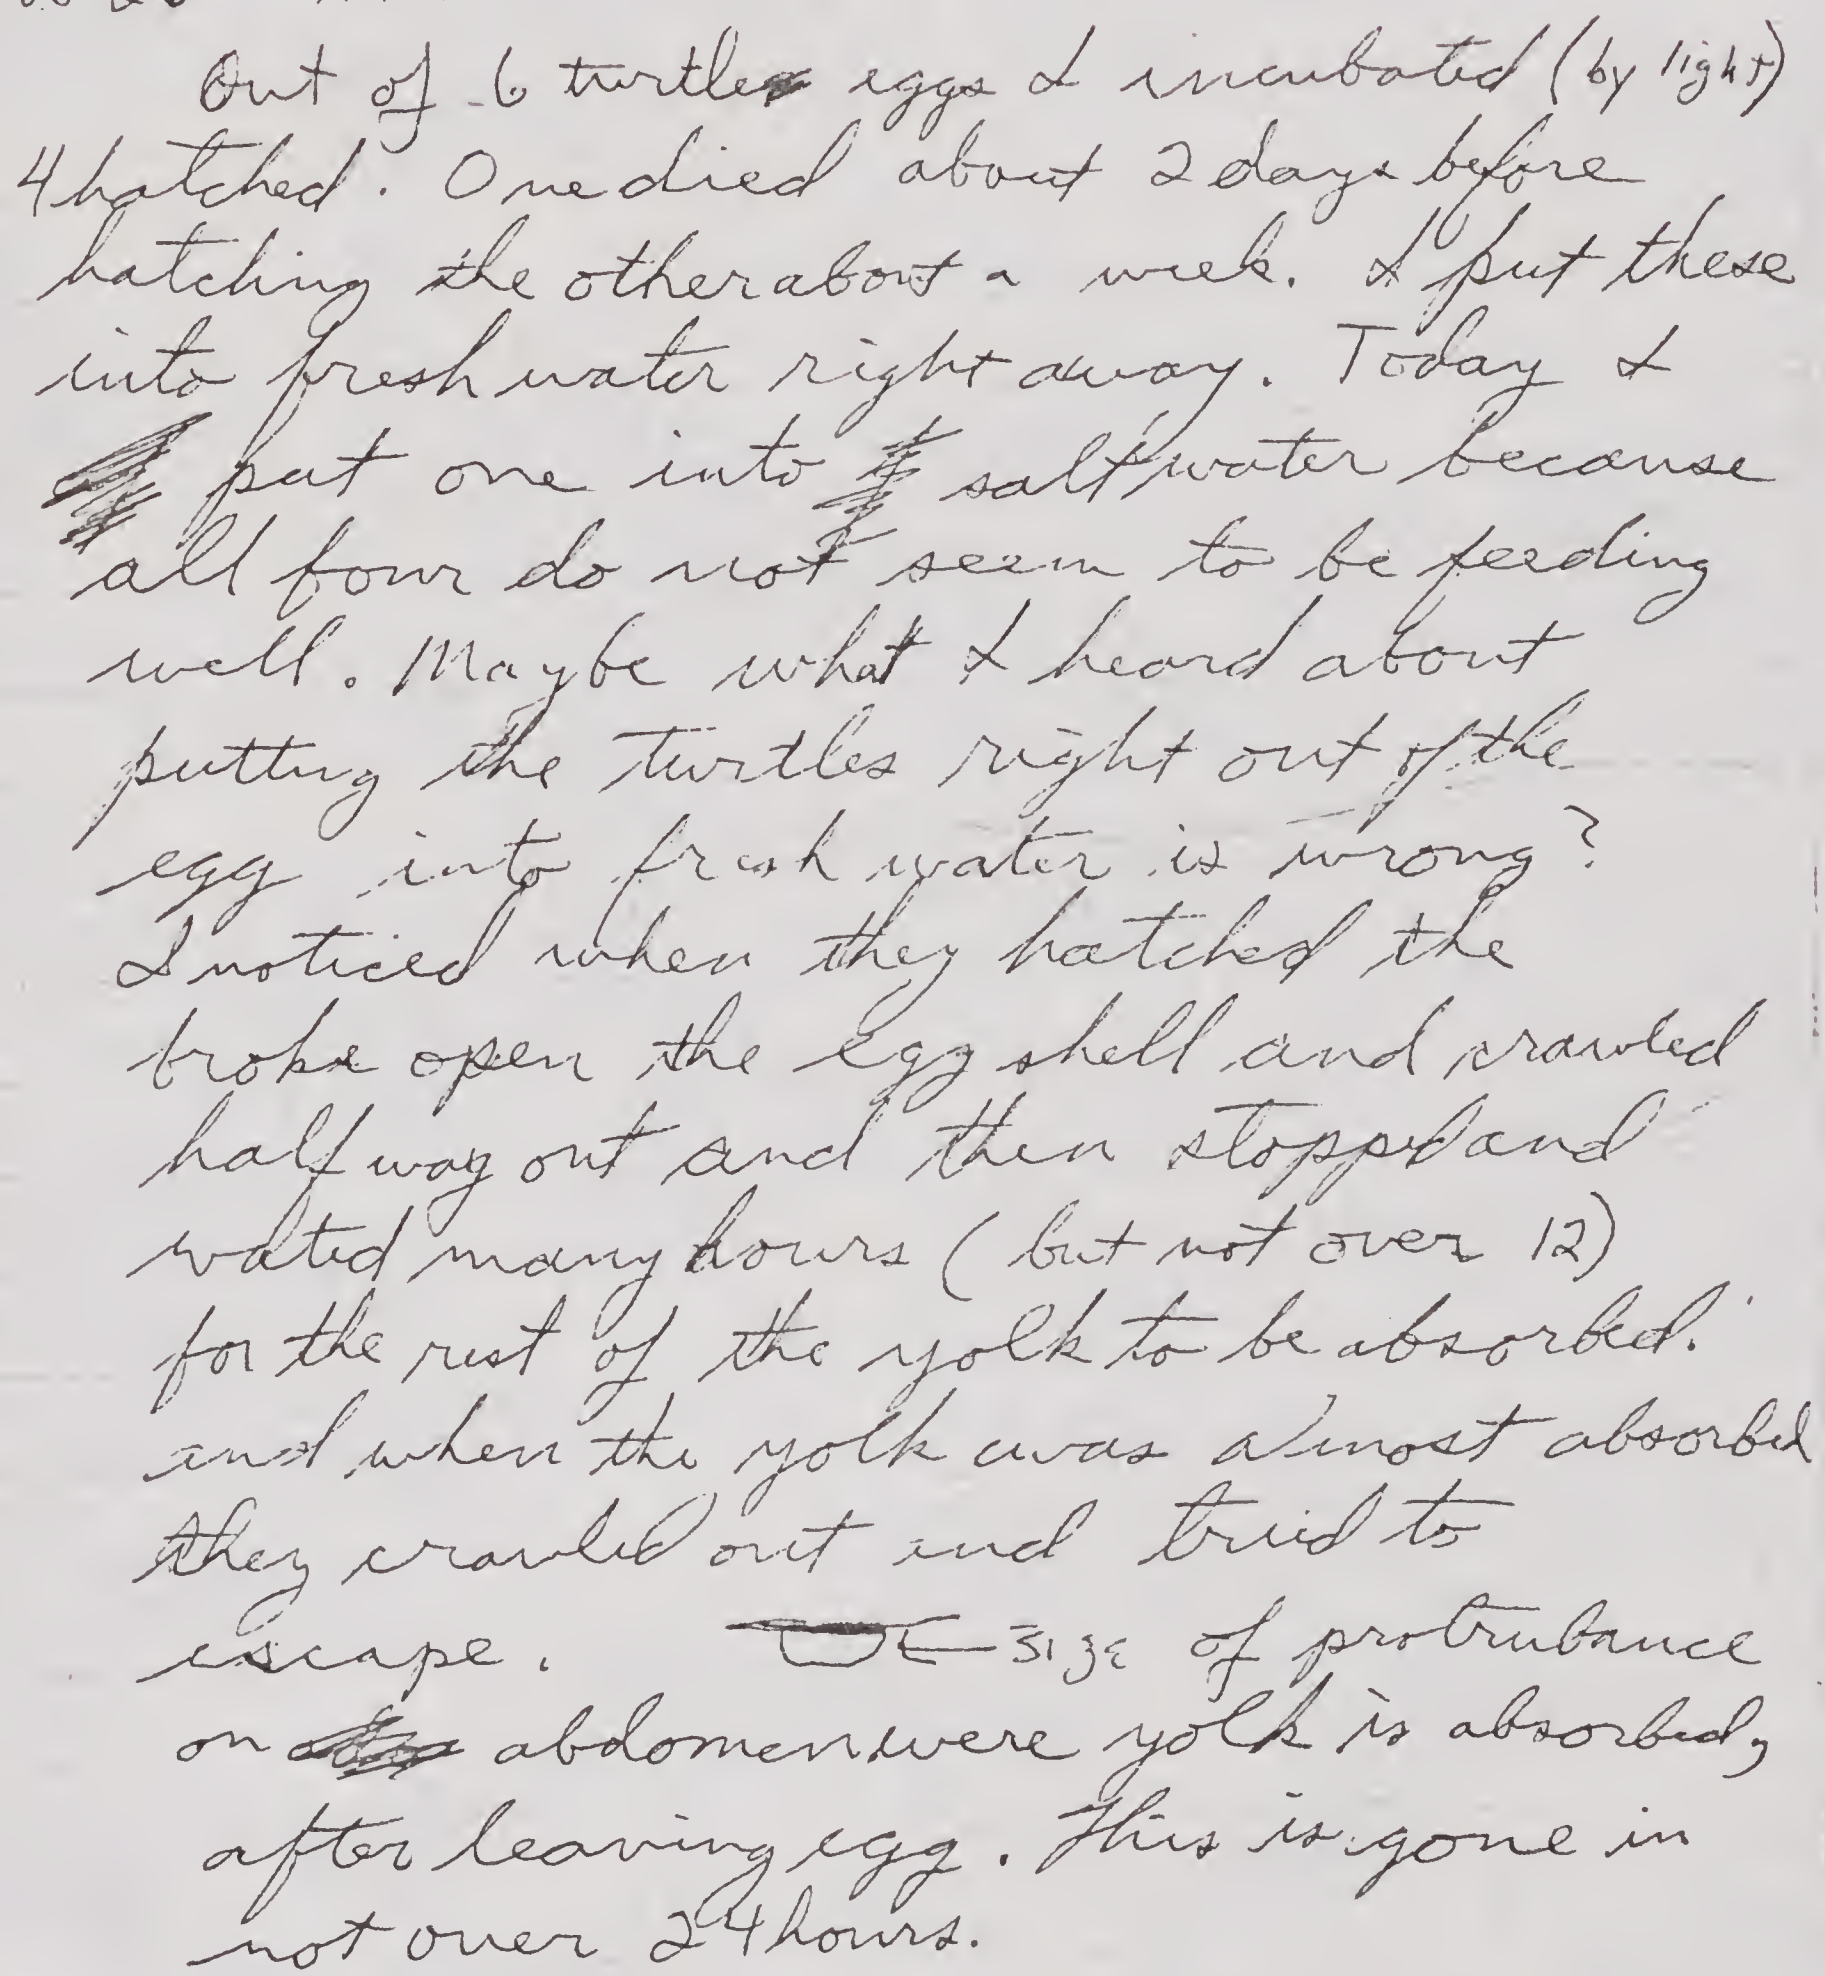 Out of 6 turtle eggs I incubated (by light)
4 hatched. One died about 2 days before
hatching the other about a week. I put these
into fresh water right away. Today I
put one into salt water because
all four do not seem to be feeding
well. Maybe what I heard about
puttng the turtles right out of the
egg into fresh water is wrong?
I noticed when they hatched the
broke open the egg shell and crawled
half way out and then stopped and
wated many hours (but not over 12)
for the rest of the yolk to be absorbed.
and when the yolk was almost absorbed
they crawled out and tried to
escape. size of protrubance
on abdomen were yolk is absorbed,
after leaving egg. This is gone in
not over 24 hours.